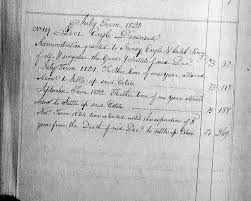 July Term 1820
No 119 Levi Cogle Deceased
Administration granted to Nancy Cogle & Caleb
of all & singular the Goods & Chattels of said Decd 13 52
July Term 1821. Further time of one year allowed
Admrs to settle up said Estate 13 118
September Term 1822. Further time of one year allowed
Admrs to settle up said Estate 13 188
Novr Term 1824 time extended until the expiration of 5
years from the Death of said Decd to settle up Estate 13 369